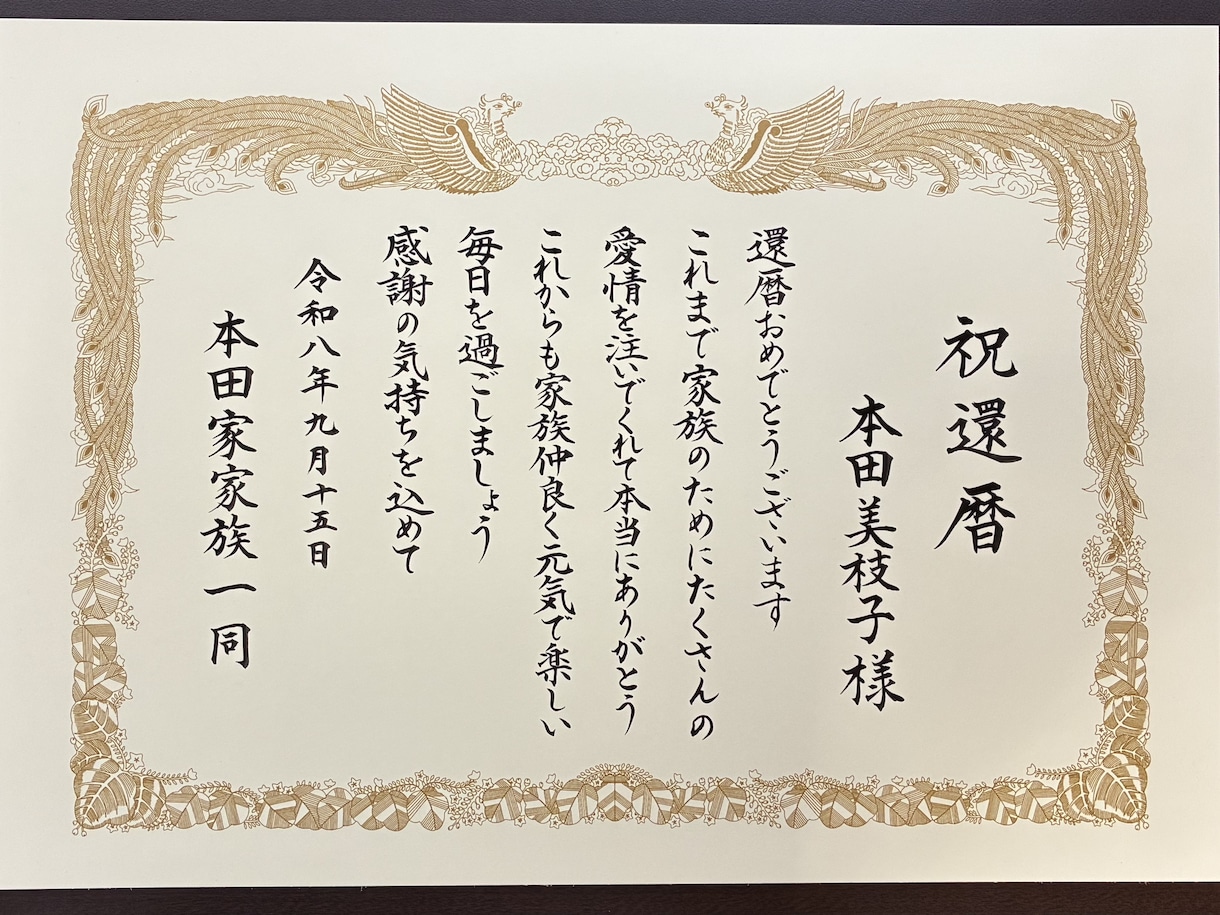 祝還暦
本田美枝子様
還暦おめでとうございます
これまで家族のためにたくさんの
愛情を注いでくれて本当にありがとう
これからも家族仲良く元気で楽しい
毎日を過ごしましょう
感謝の気持ちを込めて
令和八年九月十五日
本田家家族一同